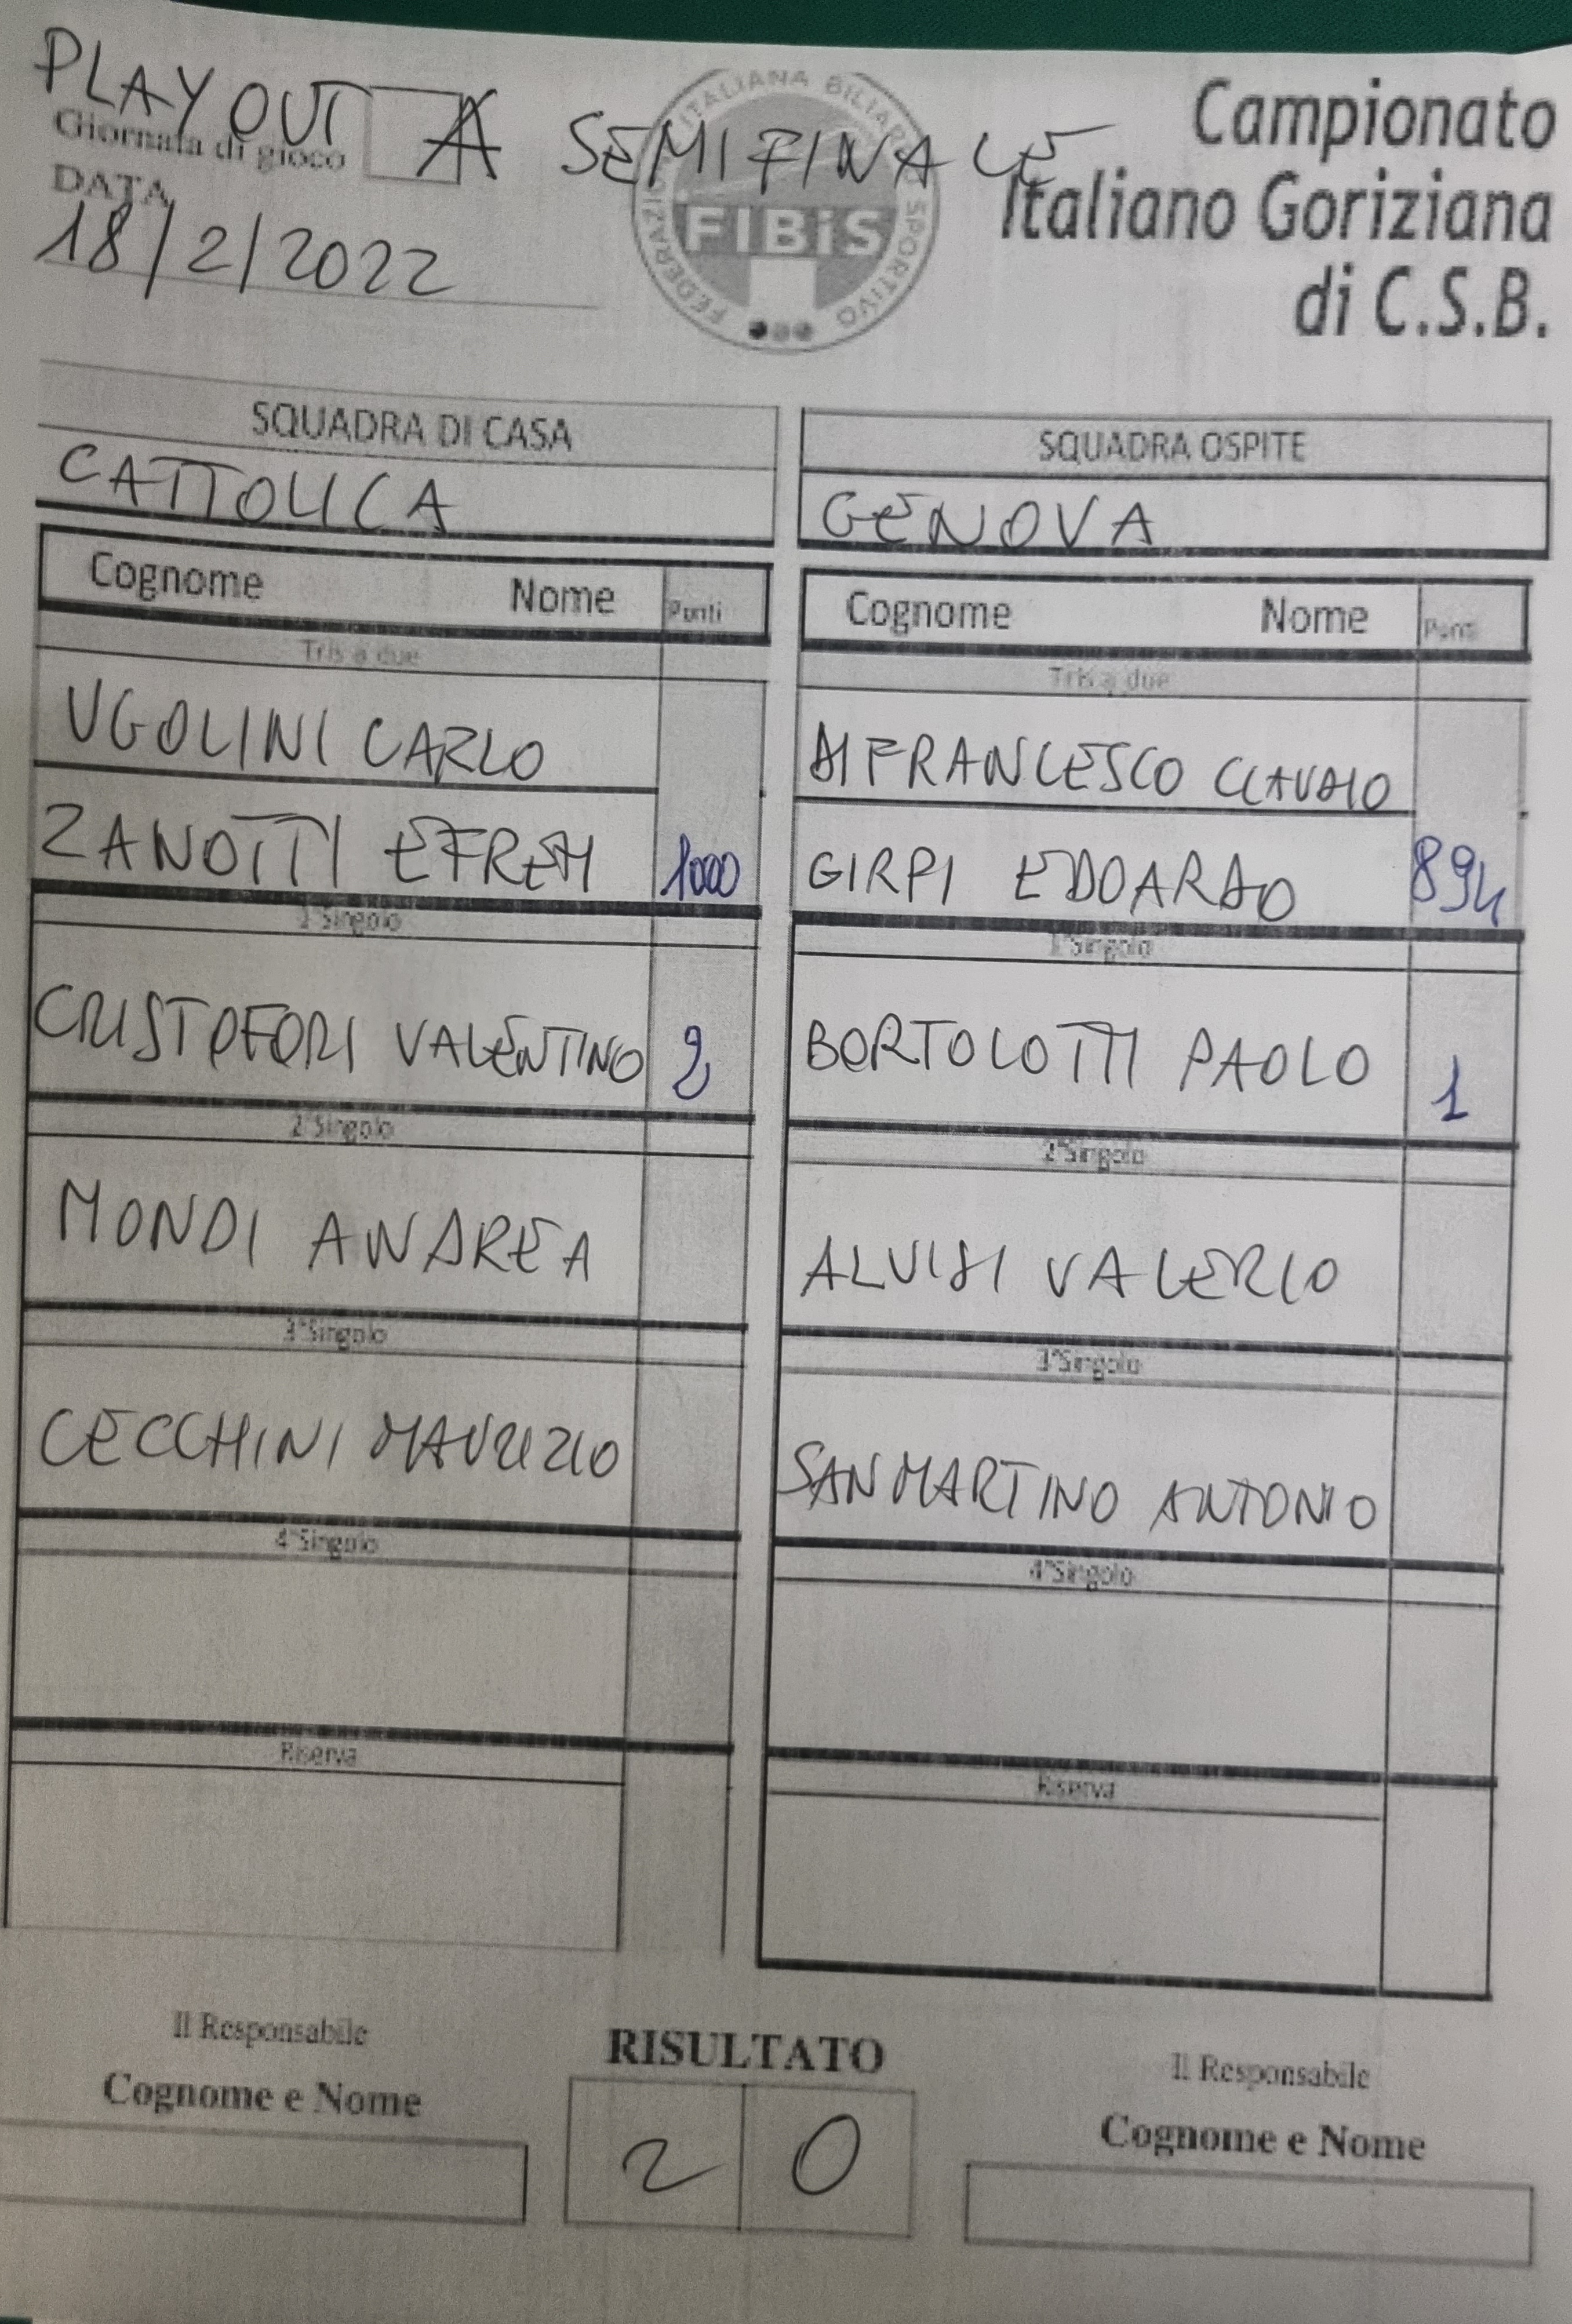 PLAY OUT A SEMIFINALE
Giornata di gioco
DATA
18/2/2022
FEDERAZIONE ITALIANA BILIARDO SPORTIVO
FIBiS
Campionato
Italiano Goriziana
di C.S.B.
SQUADRA DI CASA
CATTOLICA
Cognome Nome Punti
Tris a due
UGOLINI CARLO
ZANOTTI EFREM 1000
1°Singolo
CRISTOFORI VALENTINO 2
2°Singolo
MONDI ANDREA
3°Singolo
CECCHINI MAURIZIO
4°Singolo
Riserva
SQUADRA OSPITE
GENOVA
Cognome Nome Punti
Tris a due
DIFRANCESCO CLAUDIO
GIRPI EDOARDO 894
1°Singolo
BORTOLOTTI PAOLO 1
2°Singolo
ALVISI VALERIO
3°Singolo
SANMARTINO ANTONIO
4°Singolo
Riserva
Il Responsabile
Cognome e Nome
RISULTATO
2 0
Il Responsabile
Cognome e Nome